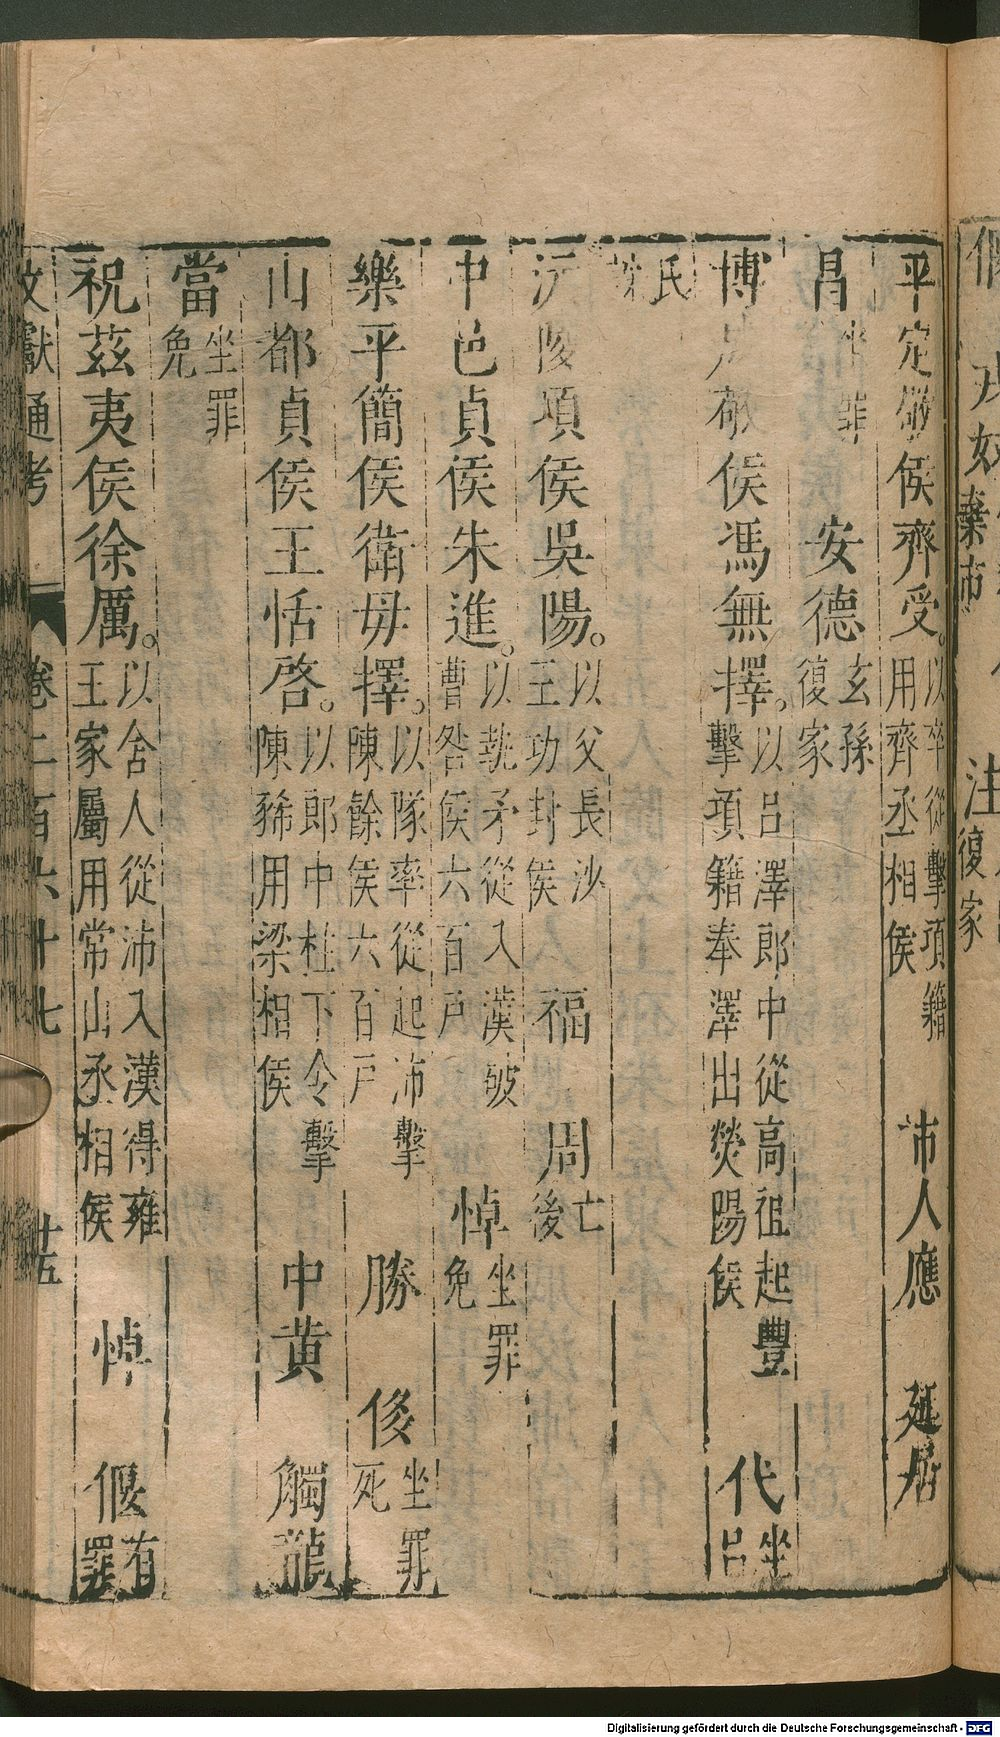 平定敬侯齊受。以卒從擊項籍用齊丞相侯 市人應 延居
昌坐罪 安德玄孫復家
博成敬侯馮無擇。以呂澤郎中從高祖起豐擊項籍奉澤出滎陽侯 代坐呂
氏誅
沅陵項侯吳陽。以父長沙王功封侯 福 周亡後
中邑貞侯朱進。以執矛從入漢破曹咎侯六百戶 悼坐罪免
樂平簡侯衛毋擇。以隊率從起沛擊陳餘侯六百戶 勝 侈坐罪死
山都貞侯王恬啓。以郎中柱下令擊陳豨用梁相侯 中黃 觸龍
當坐罪免
祝茲夷侯徐厲。以舍人從沛入漢得雍王家屬用常山丞相侯 悼 偃有罪
文獻通考 卷二百六十七 十五
Digitalisierung gefördert durch die Deutsche Forschungsgemeinschaft - DFG